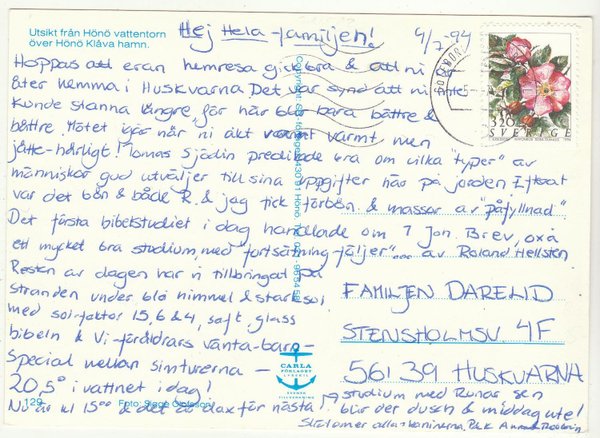 Utsikt från Hönö vattentorn
över Hönö Klåva hamn.
Hej Hela familjen!
4/7-94
Hoppas att eran hemresa gick bra & att ni
åter hemma i Huskvarna. Det var synd att ni inte
kunde stanna längre, för här blir bara bättre &
bättre. Mötet igår när ni åkt varmt men
jätte-härligt! Tomas Sjödin predikade bra om vilka "typer" av
människor gud utväljer till sina uppgifter här på jorden. Efteråt
var det bön & både R. & jag fick förbön & massor av "påfyllnad"
Det första bibelstudiet i dag handlade om 1 Joh. Brev, oxå
ett mycket bra studium, med "fortsättning följer"... av Roland Hellsten
Resten av dagen har vi tillbringat på
stranden under blå himmel & stark sol
med solfaktor 15, 6 & 4, saft, glass
bibeln & Vi-föräldrars vänta-barn-
special mellan simturerna -
20,5° i vattnet i dag!
Nu är kl 15⁰⁰ & det är dax för nästa
studium med Runar, sen
blir der dusch & middag ute!
SVERIGE
320
FAMILJEN DARELID
STENSHOLMSV 4F
561 39 HUSKVARNA
CARLA
FÖRLAGET
LYSEKIL
129
Foto: